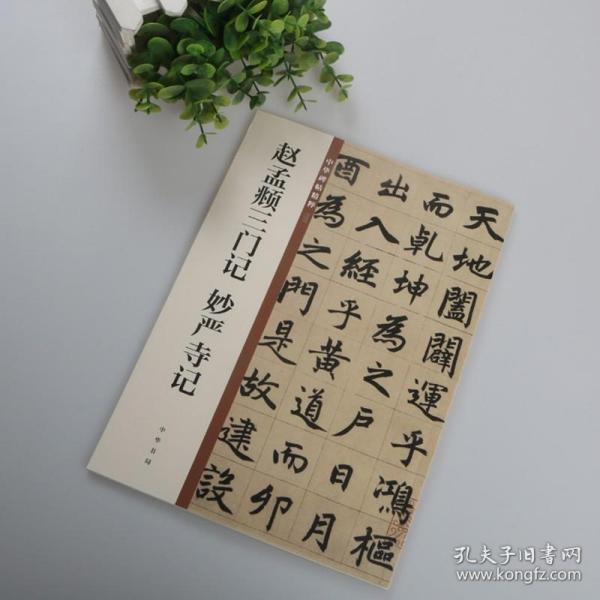 赵孟頫三门记 妙严寺记
中华书局
中华碑帖精粹
天地闔闢運乎鴻樞
而乾坤為之戶日月
出入經乎黃道而卯
酉為之門是故建設
孔夫子旧书网
www.kongfz.com